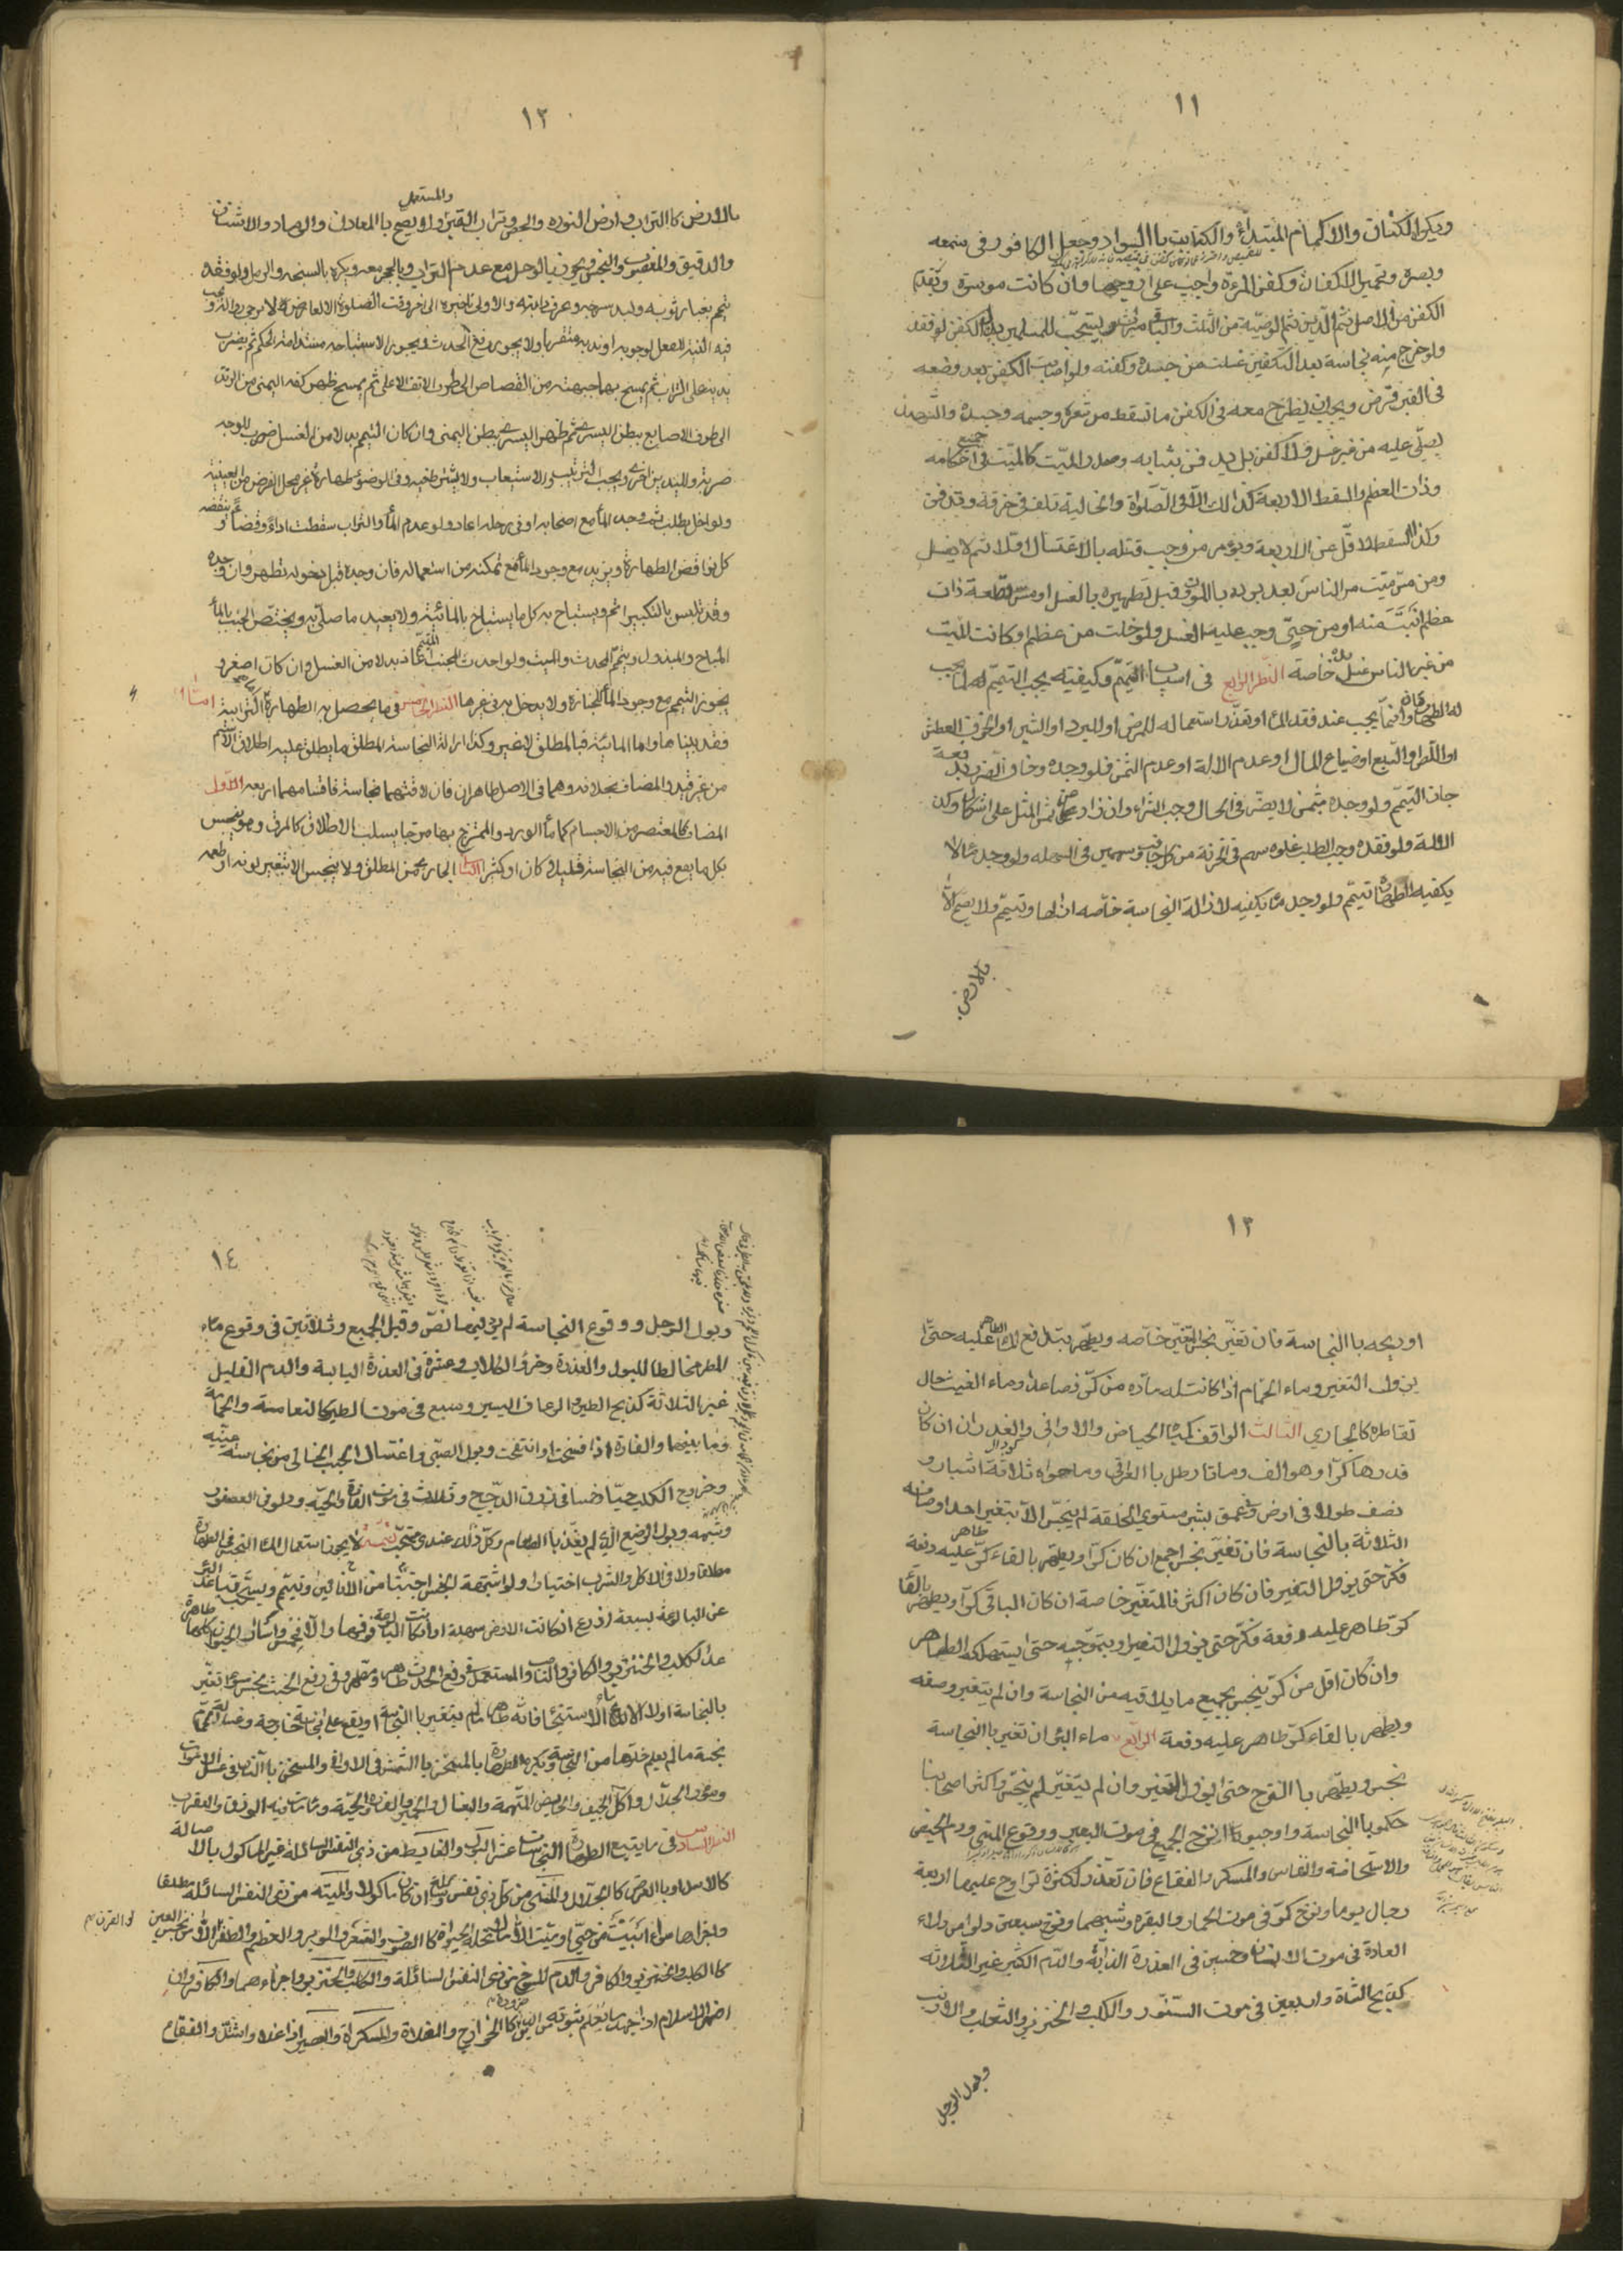 ١١
ويكره الكتان والاكمام المبتدأة والكتابة باالسواد وجعل الكافور في سمعه
وبصره وتجمير الاكفان وكفن المرءة واجب على زوجها وان كانت موسرة ويقدم
الكفن من الاصل ثم الدين ثم الوصية من الثلث والباقي ميراث ويستحب للمسلمين بذل الكفن لو فقد
ولو خرج منه نجاسة بعد التكفين غسلت من جسده وكفنه ولو اصابت الكفن بعد وضعه
في القبر قرض ويجب ان يطرح معه في الكفن ما تسقط من شعره وجسمه وجسده والشهيد
يصلى عليه من غير غسل ولا كفن بل يدفن بثيابه وصدر الميت كالميت في جميع احكامه
وذات العظم والسقط لاربعة كذالك الا في الصلوة والخالية تلف في خرقة وتدفن
وكذا السقط لاقل من الاربعة ويؤمر من وجب قتله باالاغتسال اولا ثم لا يغسل
ومن مس ميت من الناس بعد برده باالموت وقبل تطهيره بالغسل او مس قطعة ذات
عظم ابينت منه او من حي وجب عليه الغسل ولو خلت من عظم او كانت لميت
من غير الناس غسل يده خاصة النظر الرابع في اسباب التيمم وكيفيته يجب التيمم لما يجب
له الطهارتان وانما يجب عند فقد الماء او تعذر استعماله للمرض او البرد او الشين او الخوف العطش
او اللص او السبع او ضياع المال او عدم الالة او عدم الثمن فلو وجده وخاف الضرر بدفعه
جاز التيمم ولو وجده بثمن لا يضر في الحال وجب الشراء وان زاد عن ثمن المثل على اشكال وكذا
الالة ولو فقده وجب الطلب غلوة سهم في الحزنة من كل جانب وسهمين في السهله ولو وجد ماء لا
يكفيه للطهارة تيمم ولو وجد ماء يكفيه لازالة النجاسة خاصه ازالها وتيمم ولا يصح الا
بالارض
١٢
والمستعمل
بالارض كاالتراب وارض النوره والجص وتراب القبر ولا يصح باالمعادن والرماد والاشنان
والدقيق والمغصوب والنجس ويجوز بالوحل مع عدم التراب وبالحجر معه ويكره بالسبخه والرمل ولو فقده
تيمم بغبار ثوبه ولبد سرجه وعرف دابته والاولى تاخيره الى اخر وقت الصلوة الا لعارض لا يرجو زواله ويجب
فيه النية للفعل لوجوبه او ندبه متقربا ولا يجوز رفع الحدث ويجوز الاستباحه مستدامة الحكم ثم يضرب
بيديه على التراب ثم يمسح بهما جبهته من القصاص الى طرف الانف الاعلى ثم يمسح ظهر كفه اليمنى من الزند
الى طرف الاصابع ببطن اليسرى ثم ظهر اليسرى ببطن اليمنى وان كان التيمم بدلا من الغسل ضرب للوجه
ضربة ولليدين اخرى ويجب الترتيب والاستيعاب ولا يشترط فيه وفي الوضوء طهارة غير محل الفرض من العينية
ولو اخل بالطلب ثم وجد الماء مع اصحابه او في رحله اعاد ولو عدم الماء والتراب سقطت اداء وقضاء وينقضه
كل نواقض الطهارة ويزيد مع وجود الماء مع تمكنه من استعماله فان وجده قبل دخوله تطهر وان وجده
وقد تلبس بالتكبير اتم ويستباح به كل ما يستباح بالمائية ولا يعيد ما صلى به ويختص الجنب بالماء
المباح والمبذول وييمم المحدث والميت ولو احدث المجنب المتيمم اعاد بدلا من الغسل وان كان اصغر و
يجوز التيمم مع وجود الماء للجنازة ولا يدخل به في غيرها النظر الخامس فيما يحصل به الطهارة اما الترابية
فقد بيناها واما المائية فبالمطلق لا غير وكذا ازالة النجاسة المطلق ما يطلق عليه اطلاق الاسم
من غير قيد والمضاف بخلافه وهما في الاصل طاهران فان لاقتهما نجاسة فاقسامهما اربعه الاول
المضاف كالمعتصر من الاجسام كماء الورد والممتزج بها مزجا يسلب الاطلاق كالمرق وهو ينجس
بكل ما يقع فيه من النجاسة قليلا كان او كثيرا الثاني الجاري من المطلق ولا ينجس الا بتغير لونه او طعمه
١٣
او ريحه باالنجاسة فان تغير نجس المتغير خاصه ويطهر بتدافع الماء الطاهر عليه حتى
يزول التغير وماء الحمام اذا كانت له مادة من كر فصاعدا وماء الغيث حال
تقاطره كالجاري الثالث الواقف كمياه الحياض والاواني والغدران ان كان
قدرها كرا وهو الف ومائتا رطل باالعراقي وما حواه ثلاثة اشبار و
نصف طولا في عرض في عمق بشبر مستوي الخلقة لم ينجس الا بتغير احد اوصافه
الثلاثة بالنجاسة فان تغير نجس اجمع ان كان كرا ويطهر بالقاء كر طاهر عليه دفعة
فكر حتى يزول التغير فان كان اكثر فالمتغير خاصة ان كان الباقي كرا ويطهر بالقاء
كر طاهر عليه دفعة فكر حتى يزول التغير او بتموجه حتى يستهلكه الطاهر
وان كان اقل من كر ينجس بجميع ما يلاقيه من النجاسة وان لم يتغير وصفه
ويطهر بالقاء كر طاهر عليه دفعة الرابع ماء البئر ان تغير باالنجاسة
نجس ويطهر باالنزح حتى يزول التغير وان لم يتغير لم ينجس واكثر اصحابنا
حكموا باالنجاسة واوجبوا نزح الجميع في موت البعير ووقوع المني ودم الحيض
والاستحاضة والنفاس والمسكر والفقاع فان تعذر لكثرته تراوح عليها اربعة
رجال يوما ونزح كر في موت الحمار والبقره وشبههما ونزح سبعين دلوا من دلاء
العادة في موت الانسان وخمسين في العذرة الذائبة والدم الكثير غير الثلاثه
كذبح الشاة واربعين في موت السنور والكلب والخنزير والثعلب والارنب
وبول الرجل
١٤
وبول الرجل ووقوع النجاسة لم يرد فيها نص وقيل الجميع وثلاثين في وقوع ماء
المطر مخالطا للبول والعذرة وخرؤ الكلاب وعشرة في العذرة اليابسة والدم القليل
غير الثلاثة كذبح الطير والرعاف اليسير وسبع في موت الطير كالنعامة والحمامة
وما بينهما والفارة اذا تفسخت او انتفخت وبول الصبي واغتسال الجنب الخالي من نجاسة عينيه
وخروج الكلب حيا وخمسا في ذرق الدجاج وثلاث في موت الفارة والحيه ودلو في العصفور
وشبهه وبول الرضيع الذي لم يغتذ باالطعام وكل ذلك عندي مستحب تتمه لا يجوز استعمال الماء النجس في الطهارة
مطلقا ولا في الاكل والشرب اختيارا ولو اشتبه النجس اجتنبا من الانائين وتيمم ويستحب تباعد البئر
عن البالوعة بسبعة اذرع ان كانت الارض سهلة او كانت البالوعة فوقها والا فخمس واسئار الحيوان كلها طاهرة
عدا الكلب والخنزير والكافر والناصب والمستعمل في رفع الحدث طاهر ومطهر وفي رفع الخبث نجس سواء تغير
بالنجاسة اولا الا ماء الاستنجاء فانه طاهر ما لم يتغير باالنجاسة او يقع على نجاسة خارجة وغسالة الحمام
نجسة ما لم يعلم خلوها من النجاسة وتكره الطهارة بالمسخن باالشمس في الاواني والمسخن باالنار في غسل الاموات
وسؤر الجلال واكل الجيف والحايض المتهمة والبغال والحمير والفارة والحية وما مات فيه الوزغ والعقرب
النظر السادس فيما يتبع الطهارة النجاسات عشر البول والغايط من ذي النفس السائلة غير الماكول بالاصالة
كالاسد او باالعرض كالجلال والمني من كل ذي نفس سائلة وان كان ماكولا والميته من ذي النفس السائلة مطلقا
كاالكلب والخنزير والكافر والدم المسفوح من ذي النفس السائلة والكلب والخنزير واجزاءهما والكافر وان
اظهر الاسلام اذا جحد ما يعلم ثبوته من الدين كاالخوارج والغلاة والمسكرات والعصير اذا غلا واشتد والفقاع